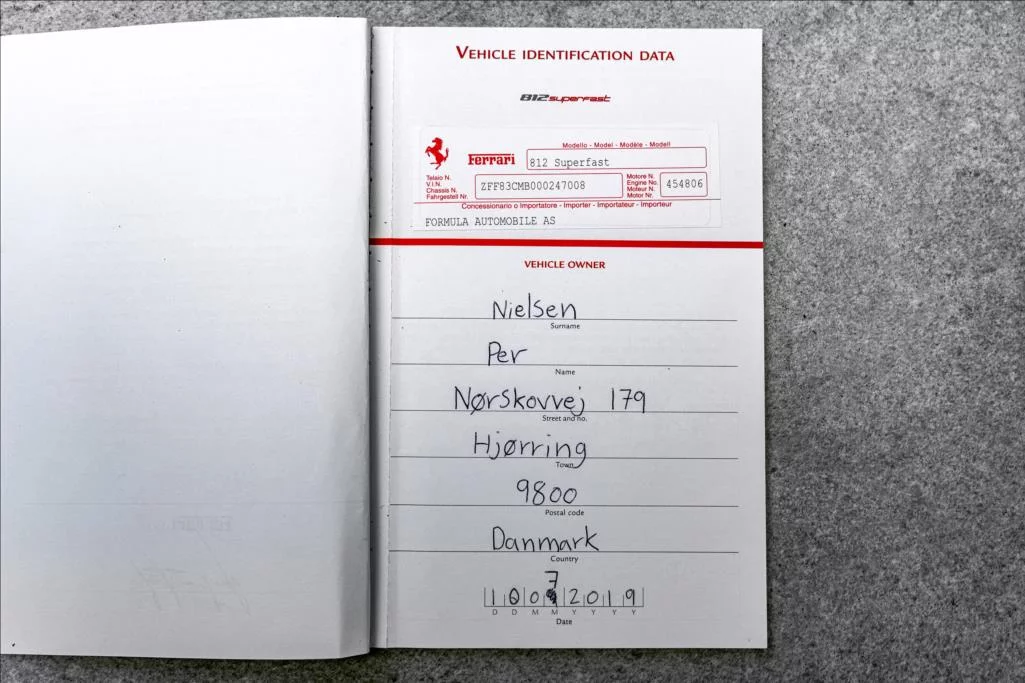 VEHICLE IDENTIFICATION DATA
812 superfast
Modello - Model - Modèle - Modell
Ferrari 812 Superfast
Telaio N.
V.I.N.
Chassis N.
Fahrgestell Nr.
ZFF83CMB000247008
Motore N.
Engine No.
Moteur N.
Motor Nr.
454806
Concessionario o Importatore - Importer - Importateur - Importeur
FORMULA AUTOMOBILE AS
VEHICLE OWNER
Nielsen
Surname
Per
Name
Nørskovvej 179
Street and no.
Hjørring
Town
9800
Postal code
Danmark
Country
7
1 0 0 2 0 1 9
D D M M Y Y Y Y
Date